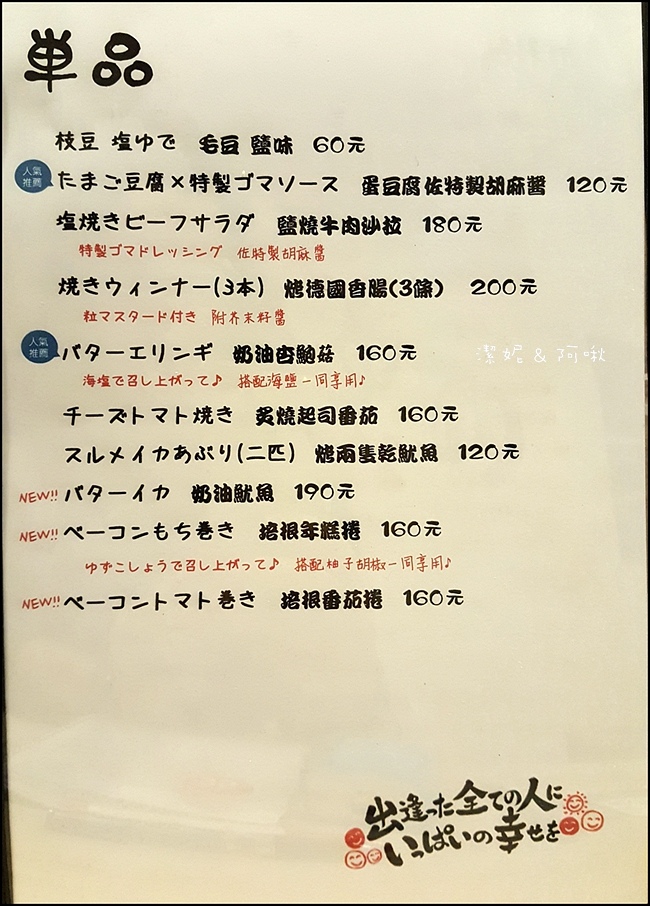 単品
枝豆 塩ゆで 毛豆 鹽味 60元
人氣推薦 たまご豆腐×特製ゴマソース 蛋豆腐佐特製胡麻醬 120元
塩焼きビーフサラダ 鹽燒牛肉沙拉 180元
特製ゴマドレッシング 佐特製胡麻醬
焼きウィンナー(3本) 烤德國香腸(3條) 200元
粒マスタード付き 附芥末籽醬
人氣推薦 バターエリンギ 奶油杏鮑菇 160元
潔妮 & 阿啾
海塩で召し上がって♪ 搭配海鹽一同享用♪
チーズトマト焼き 炙燒起司番茄 160元
スルメイカあぶり(二匹) 烤兩隻乾魷魚 120元
NEW!! バターイカ 奶油魷魚 190元
NEW!! ベーコンもち巻き 培根年糕捲 160元
ゆずこしょうで召し上がって♪ 搭配柚子胡椒一同享用♪
NEW!! ベーコントマト巻き 培根番茄捲 160元
出逢った全ての人に
いっぱいの幸せを